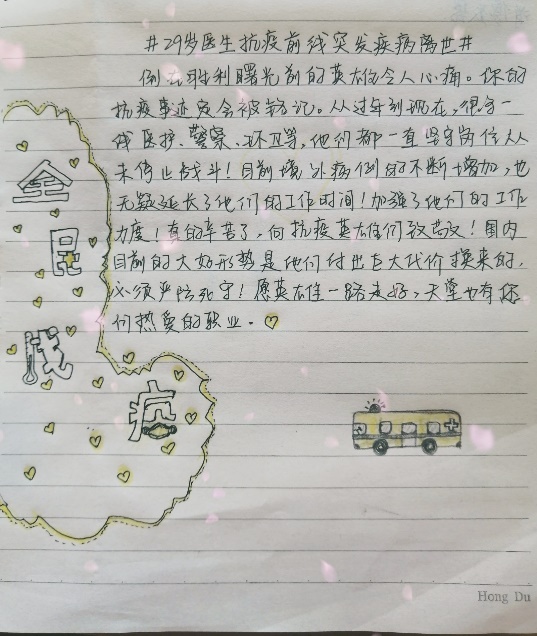 #29岁医生抗疫前线突发疾病离世#
倒在胜利曙光前的英雄令人心痛。你的
抗疫事迹定会被铭记。从过年到现在，很多一
线医护、警察、环卫等，他们都一直坚守岗位从
未停止战斗！目前境外病例的不断增加，也
无疑延长了他们的工作时间！加强了他们的工作
力度！真的辛苦了，向抗疫英雄们致敬！国内
目前的大好形势是他们付出巨大代价换来的，
必须严防死守！愿英雄一路走好，天堂也有你
们热爱的职业。
全
民
战
疫
Hong Du